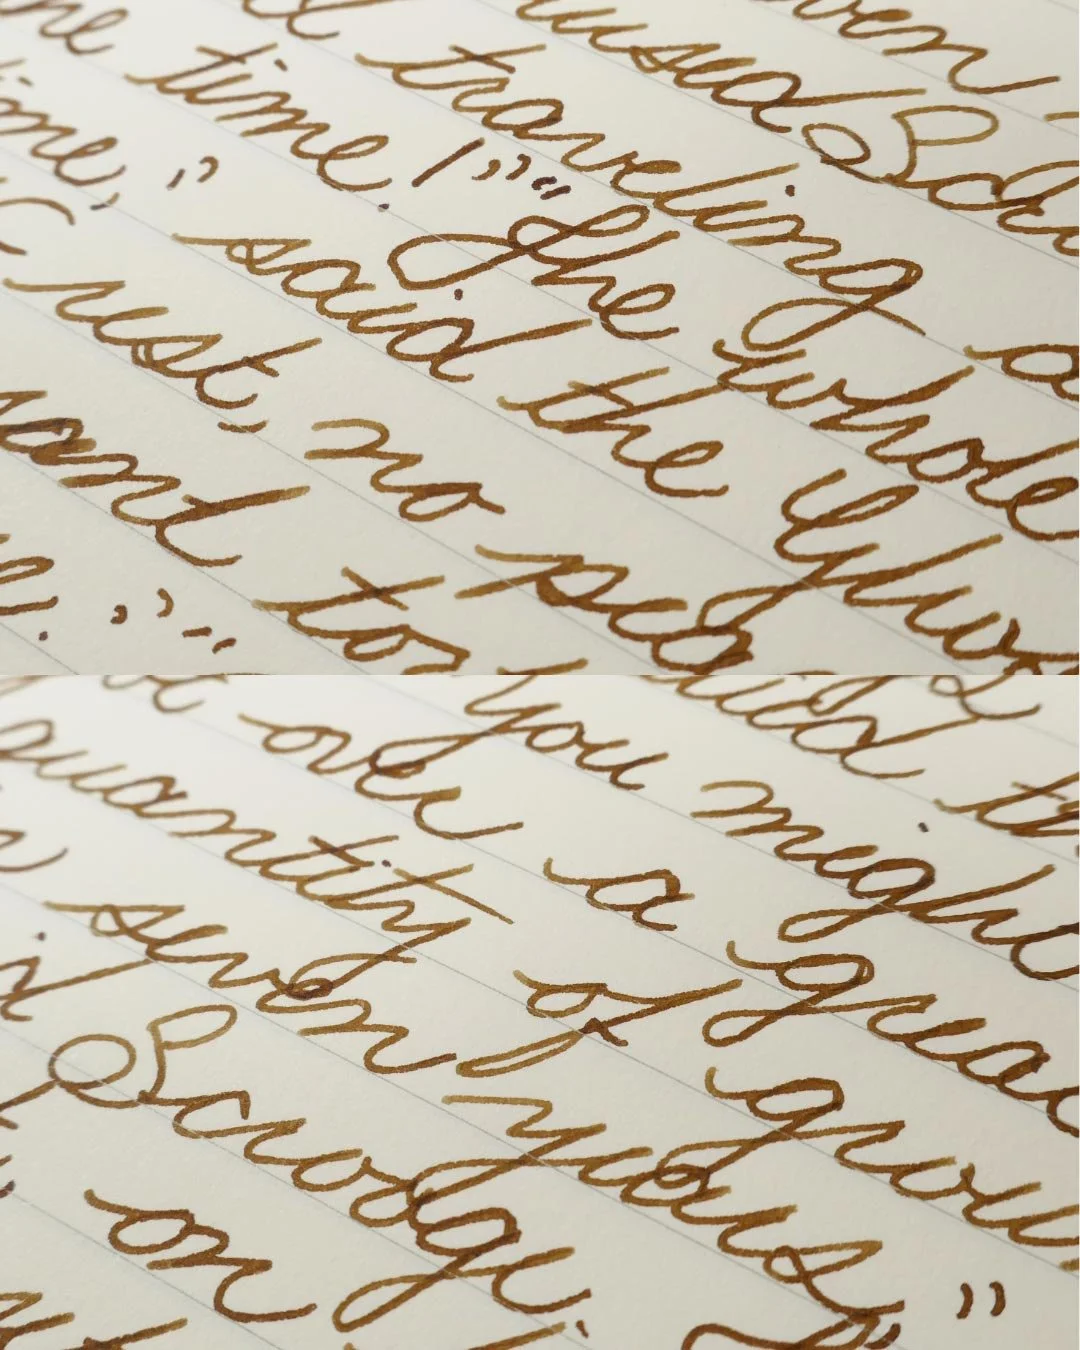 seven
mused Sc
traveling a
the time!" "The whole
time," said the Ghos
rest, no pea
and to
said th
you might
over a grea
quantity of grou
seven years,"
Scrooge.
on